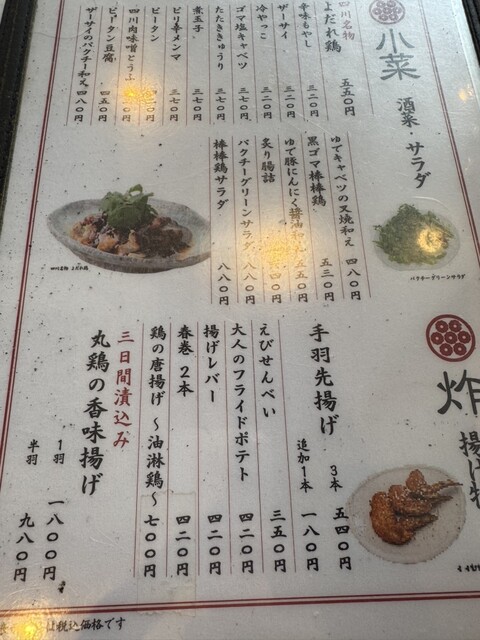 小菜
酒菜・サラダ
四川名物
よだれ鶏 五五〇円
辛味もやし 三二〇円
ザーサイ 三二〇円
冷やっこ 三二〇円
ゴマ塩キャベツ 三七〇円
たたききゅうり 三七〇円
煮玉子 三七〇円
ピリ辛メンマ 三七〇円
ピータン
四川肉味噌とうふ
ピータン豆腐 四五〇円
ザーサイのパクチー和え 四八〇円
ゆでキャベツの叉焼和え 四八〇円
黒ゴマ棒棒鶏 五三〇円
ゆで豚にんにく醤油 五五〇円
炙り腸詰
パクチーグリーンサラダ 八八〇円
棒棒鶏サラダ 八八〇円
四川名物 よだれ鶏
パクチーグリーンサラダ
炸
揚げ物
手羽先揚げ 3本 五四〇円
追加1本 一八〇円
えびせんべい 三五〇円
大人のフライドポテト 四二〇円
揚げレバー 四二〇円
春巻 2本 四二〇円
鶏の唐揚げ 〜油淋鶏〜 七〇〇円
三日間漬込み
丸鶏の香味揚げ
1羽 一八〇〇円
半羽 九八〇円
は税込価格です